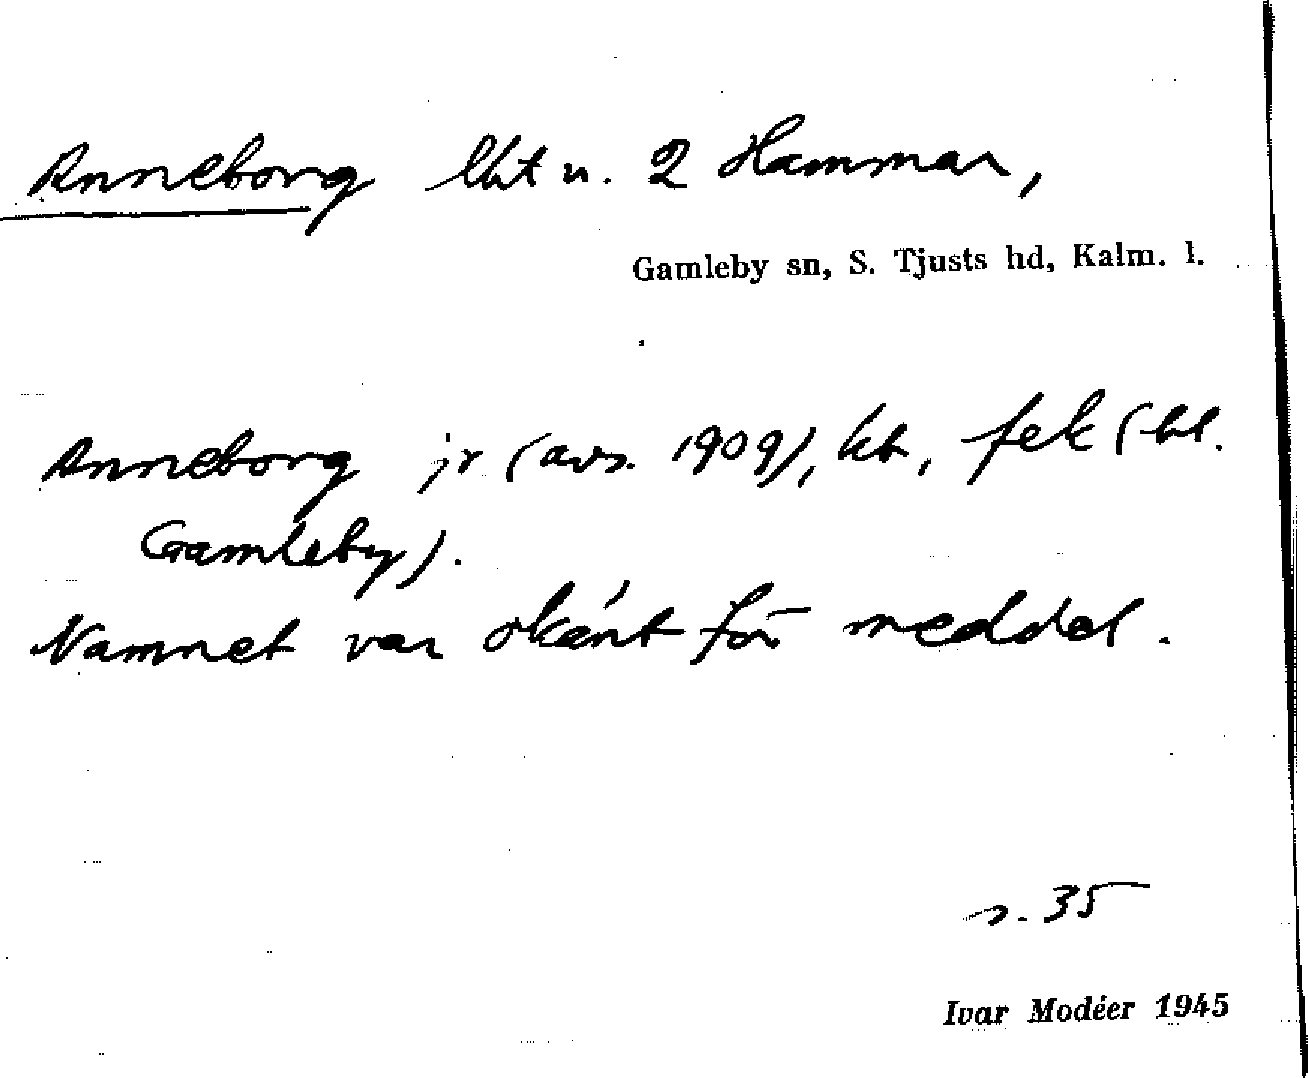 Anneborg lht u. 2 Hammar,
Gamleby sn, S. Tjusts hd, Kalm. l.
Anneborg jr (avs. 1909), kb, fek (bl.
Gamleby).
Namnet var okänt för meddel.
s. 35
Ivar Modéer 1945